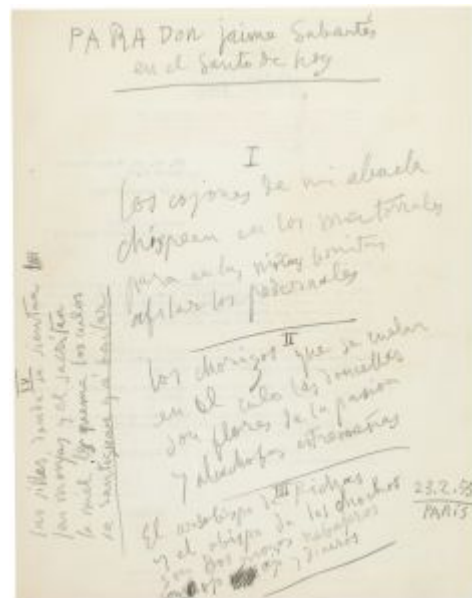 PARA DON jaime Sabartés
en el Santo de hoy
I
los cojones de mi abuela
chispean en los matorrales
para en las noches bonitas
afilar los pedernales
II
los chorizos que se cuelan
en el culo las doncellas
son flores de la pasion
y alcachofas estremeñas
III
El arzobispo de
y el obispo de los chochos
son dos
y dineros
23.2.
PARIS
IV
las sillas donde se sientan
las monjas y el sacristan
la miel les quema los culos
se